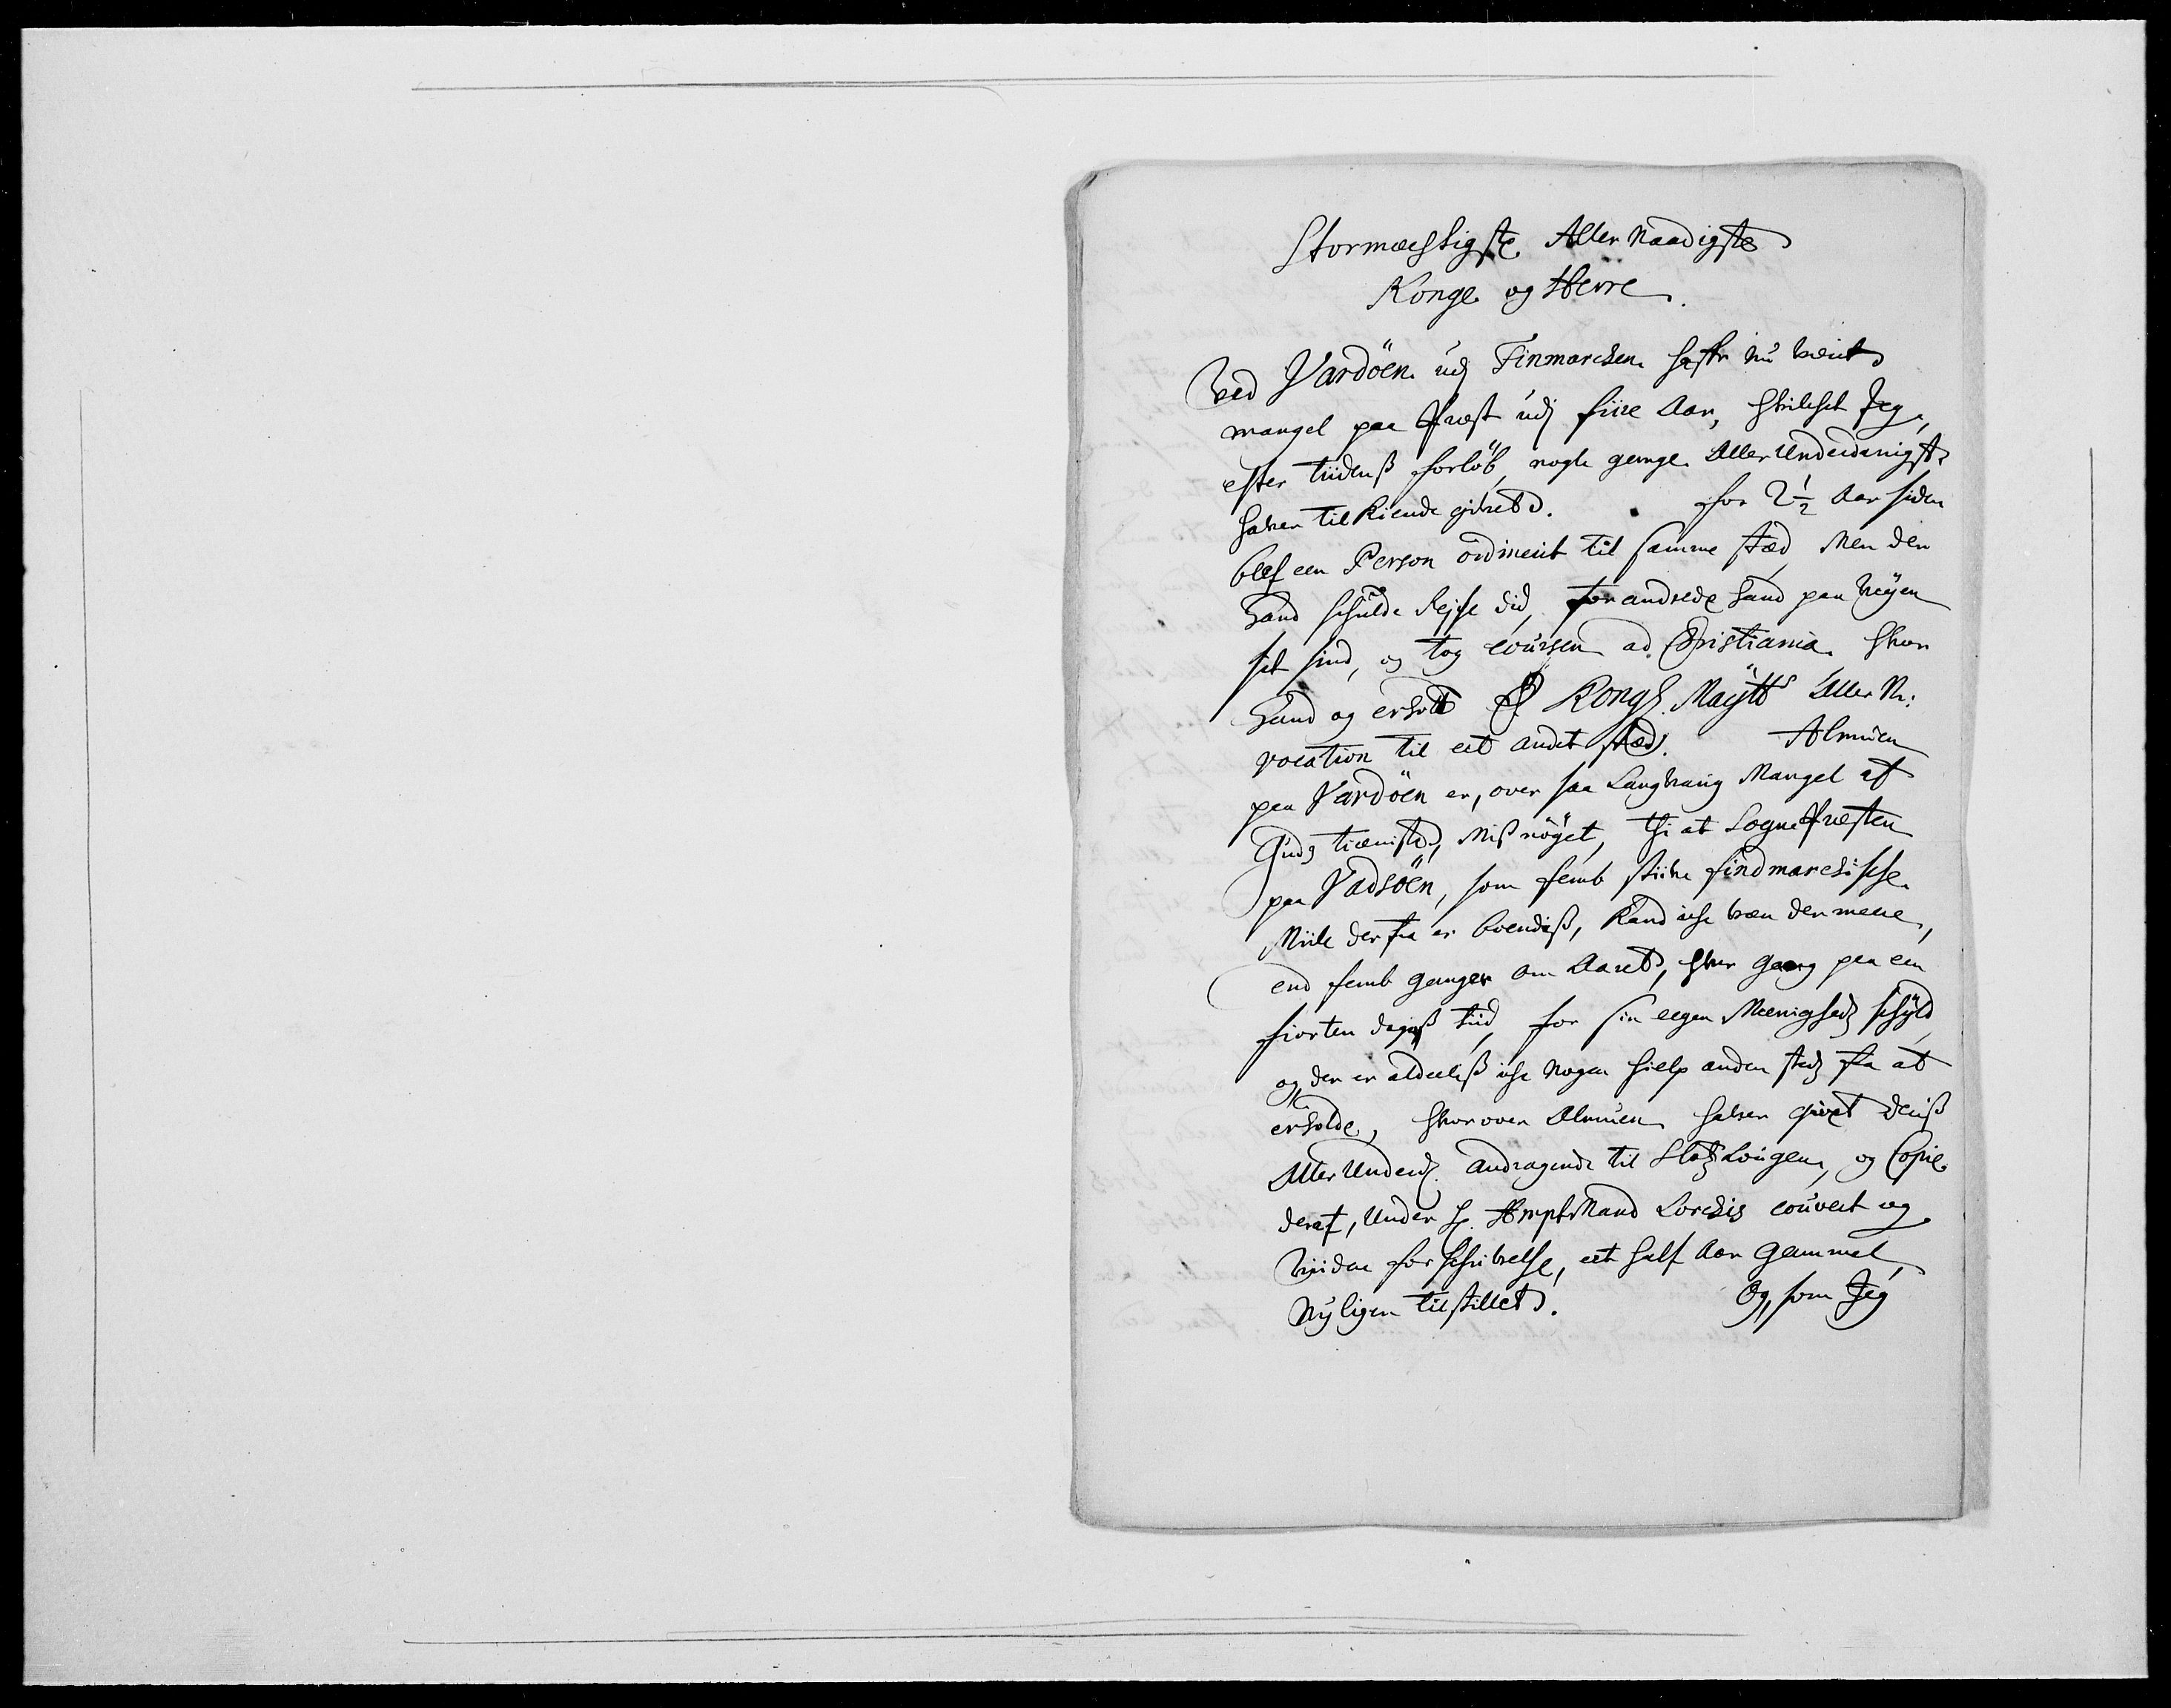 Stormechtigste Aller Naadigste
Konge og Herre.
Ved Vardöen udj Finmarcken hafr nu været
mangel paa Præst udj fiire Aar, hvilchet Jeg,
efter tiidenß forlöb, nogle gange Aller Underdanigst
haver til kiende givet. for 2 1/2 Aar siden
blef een Person ordineret til samme stæd, Men den
hand schulde Rejse did, forandrede hand paa veyen
sit sind, og tog coursen ad Christiania hvor
hand og erholt Kongl. Maÿtts Aller N:
vocation til eet andet stæd. Almuen
paa Vardöen er, over saa Langvarig Mangel af
Guds tieniste, Mißnöyet, thi at Sogne Præsten
paa Vadsöen, som femb stive findmarckische
Miile der fra er boendiß, kand iche være der meere,
end femb ganger om Aaret, hver gang paa een
fiorten dagiß tiid, for sin eegen Meenigheds schÿld,
og der er aldeeliß iche nogen hielp anden steds fra at
erholde, hvorover Almuen haver givet deriß
Aller Underd. andragende til Slotz Lougen, og Copie
deraf, under H. AmptMand Lorchis couvert og
viidere forschrivelse, eet half Aar gammel,
Nÿligen tilstillet. Og, som Jeg